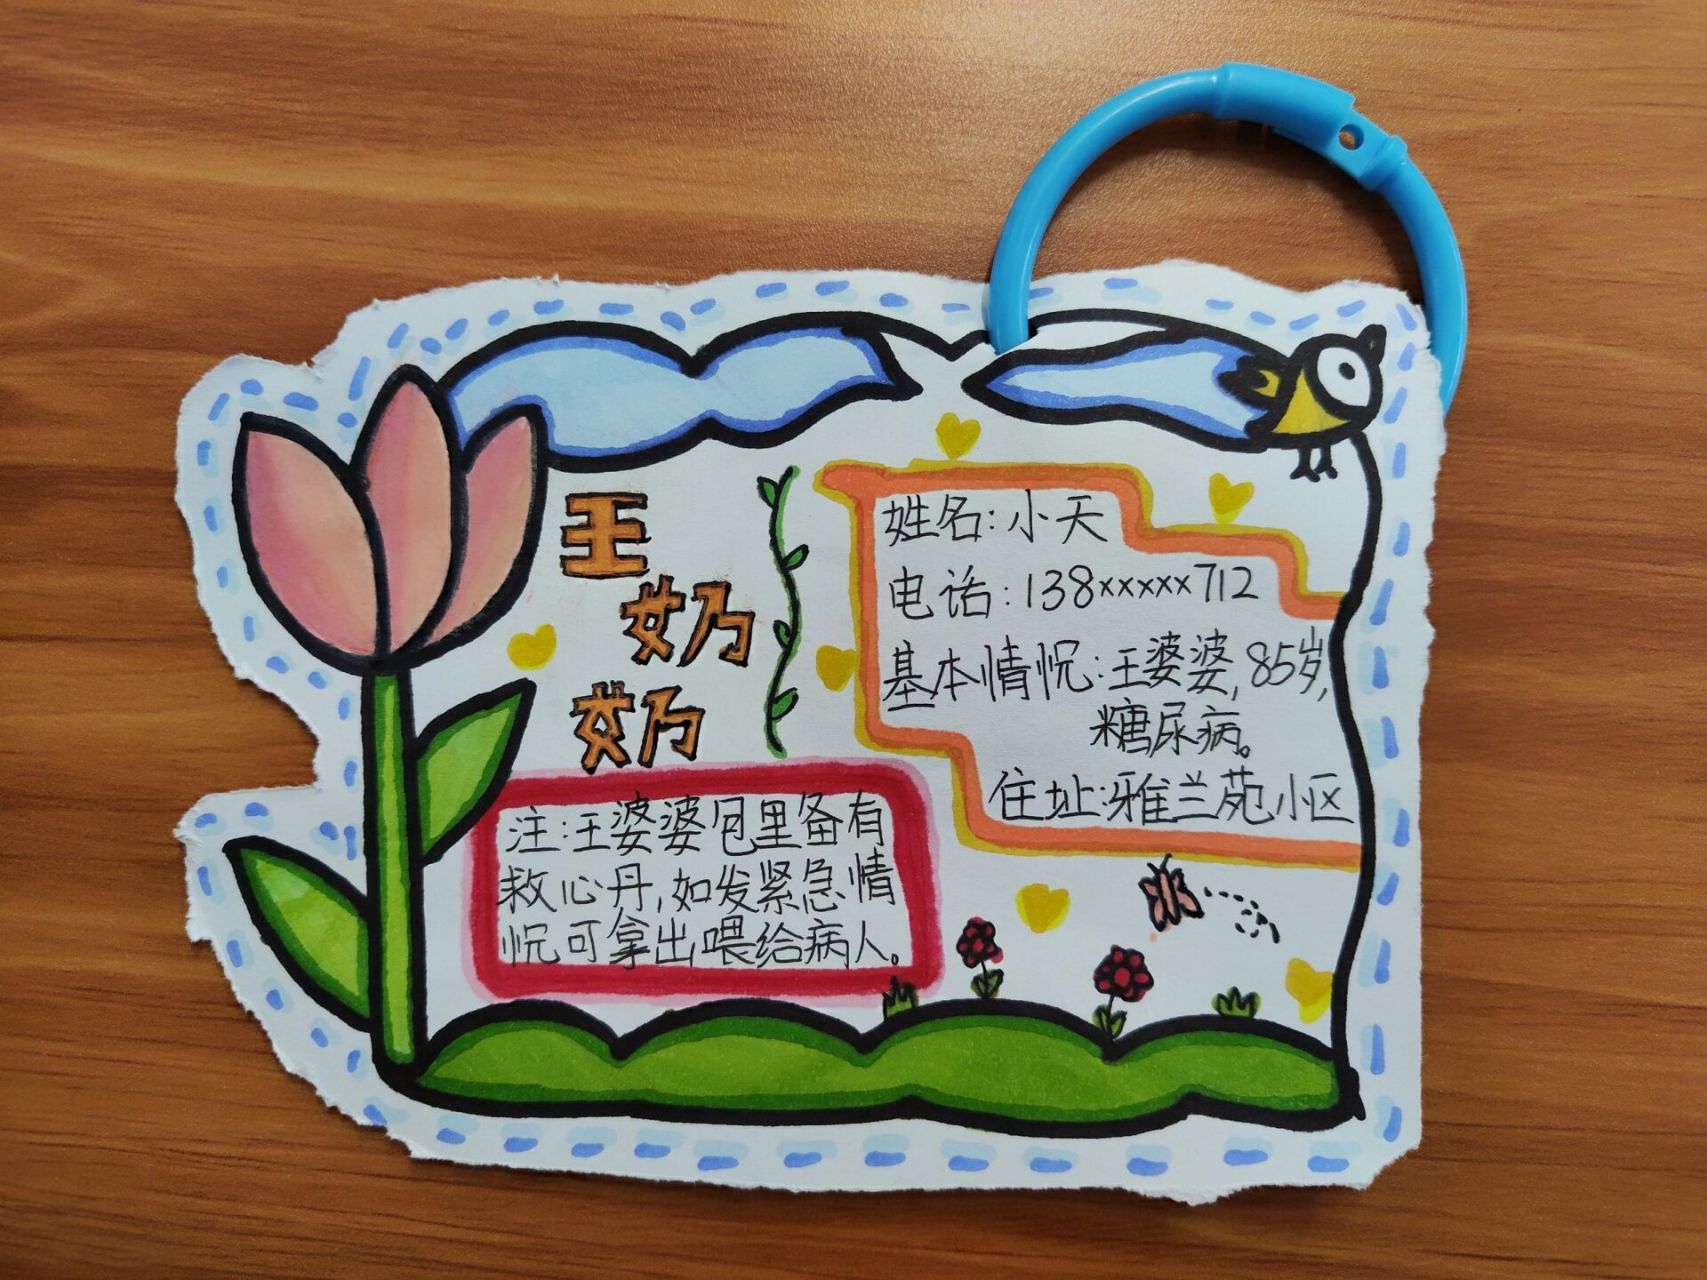 王
奶
奶
姓名:小天
电话:138×××××712
基本情况:王婆婆,85岁,
糖尿病。
住址:雅兰苑小区
注:王婆婆包里备有
救心丹,如发紧急情
况可拿出喂给病人。